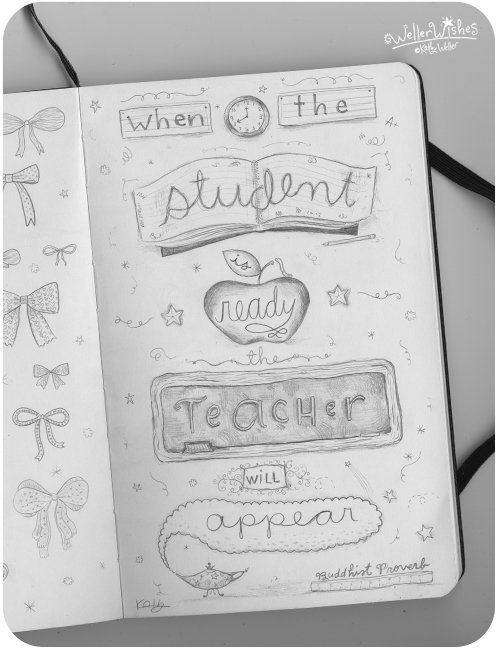 WellerWishes
©Kathy Weller
when the
student
is
ready
the
TeacHer
will
appear
Buddhist Proverb